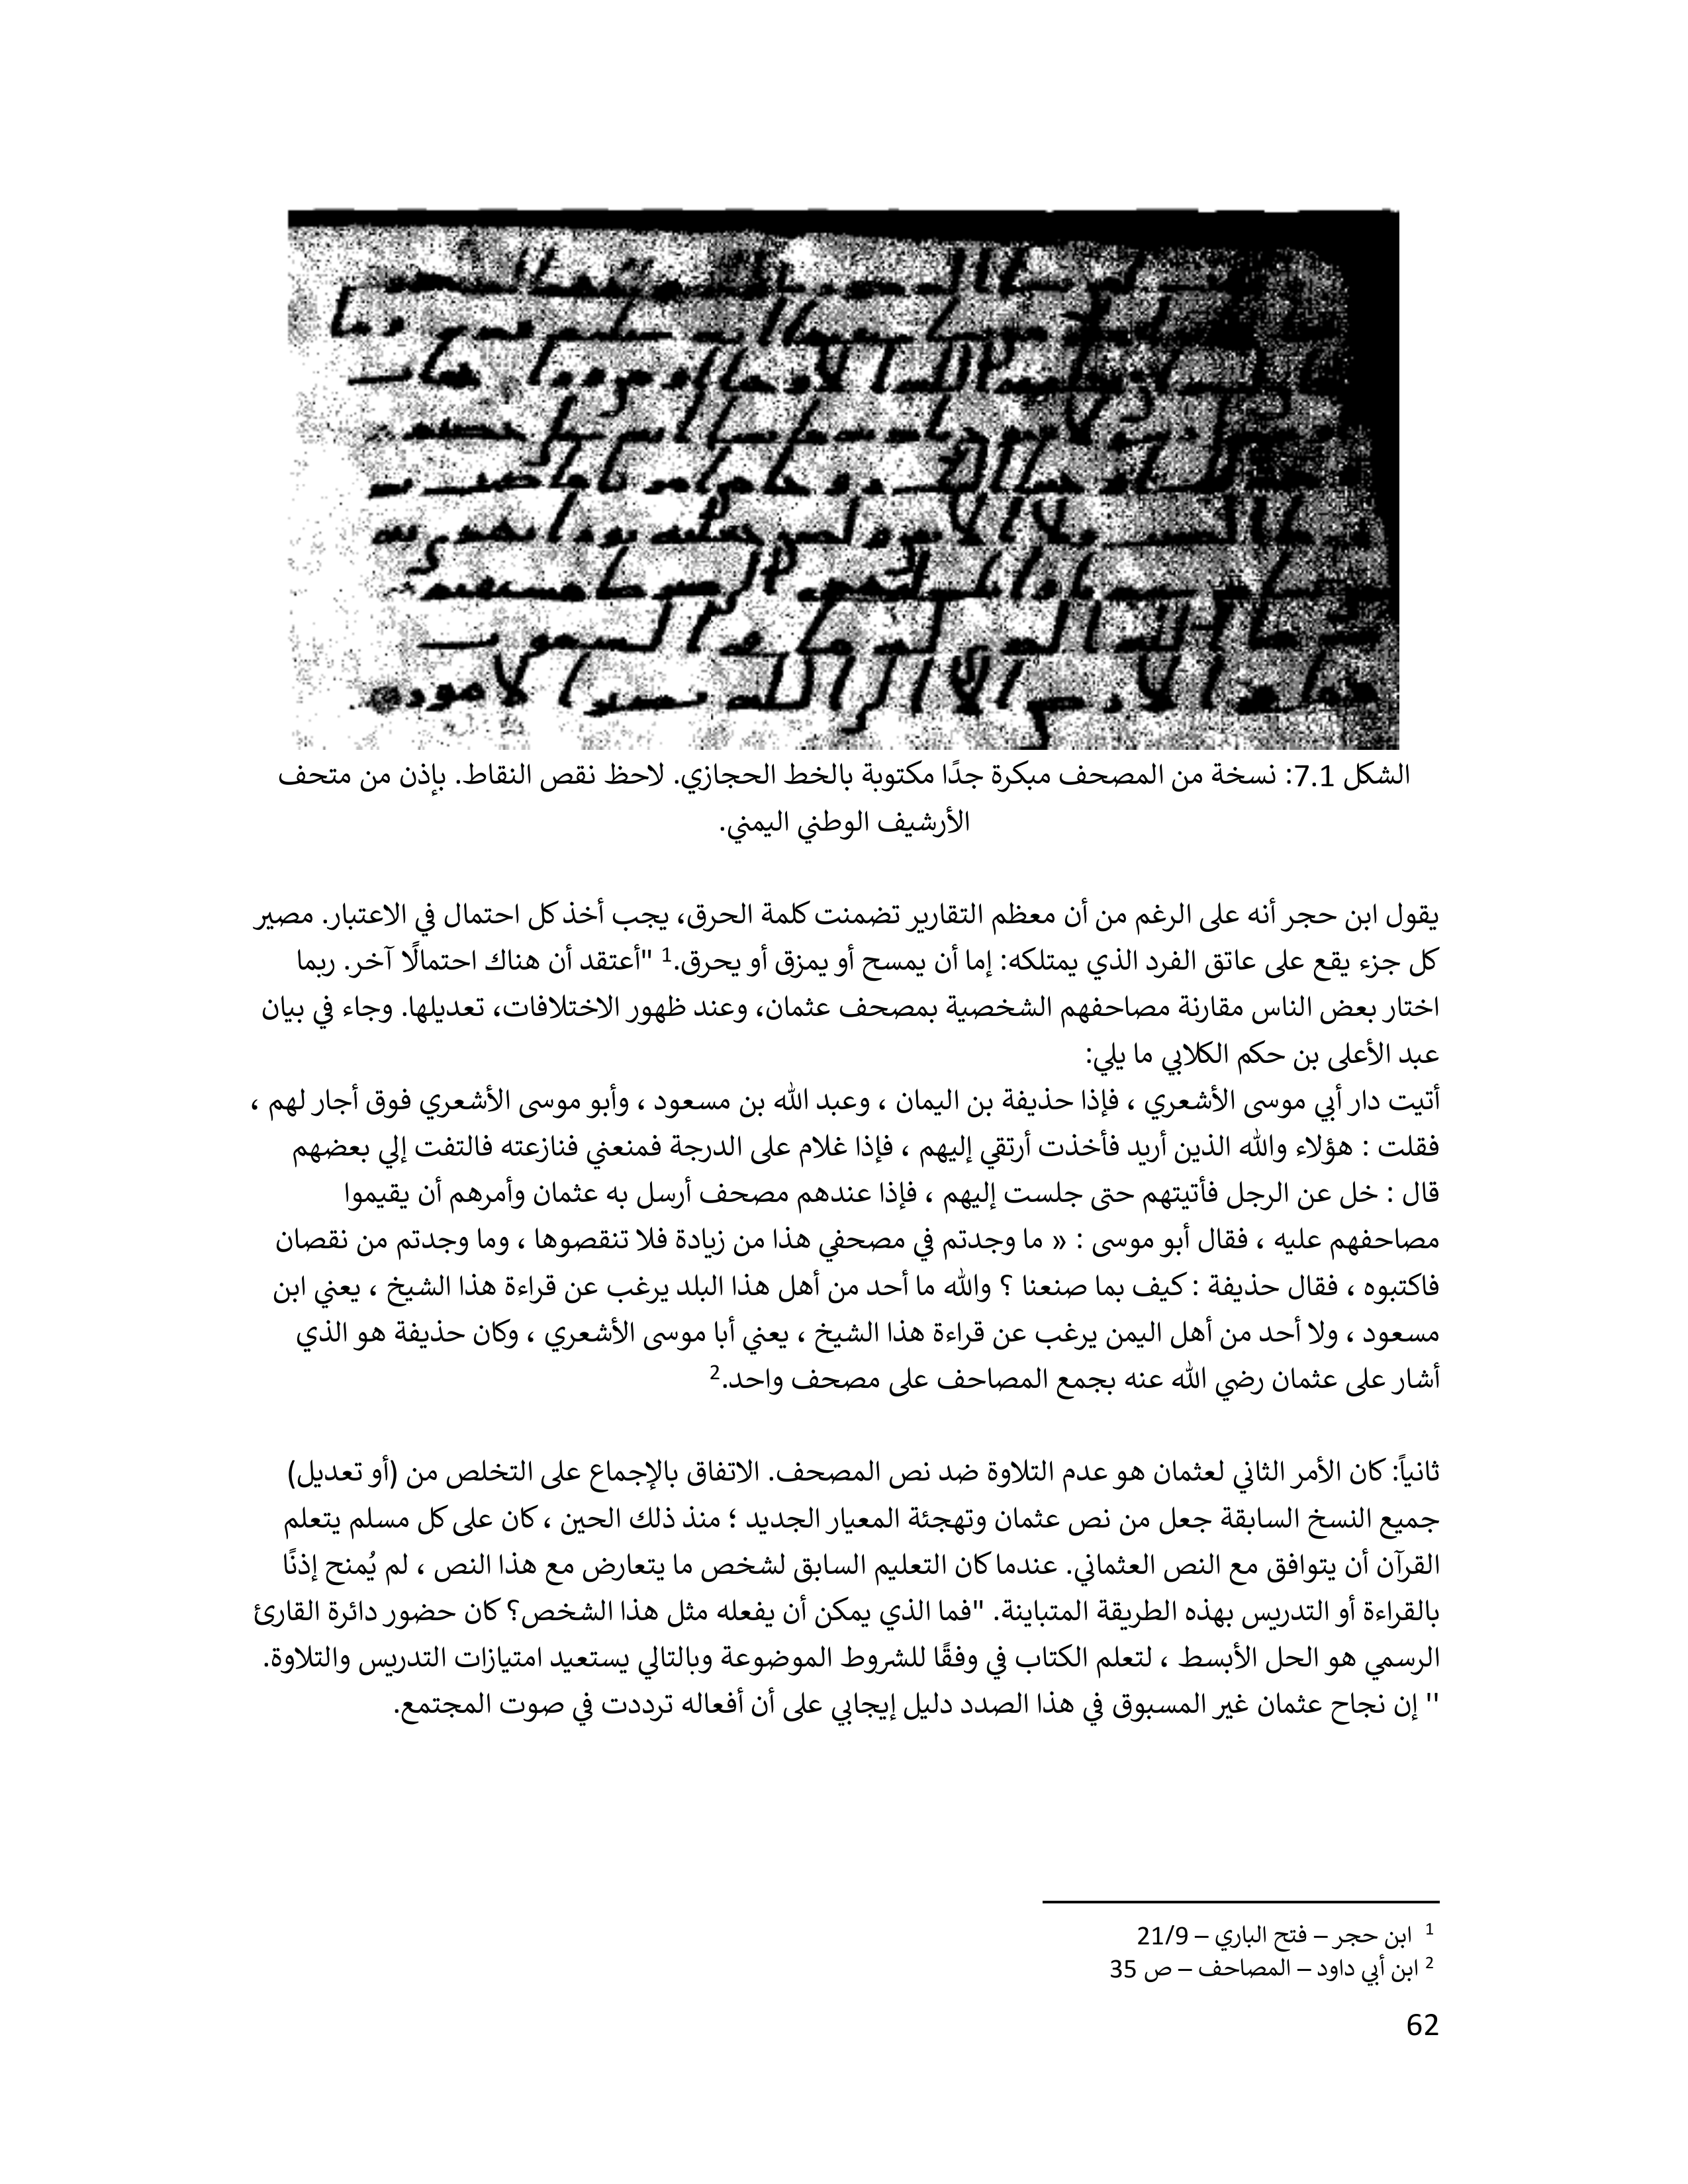 الشكل 7.1: نسخة من المصحف مبكرة جدًا مكتوبة بالخط الحجازي. لاحظ نقص النقاط. بإذن من متحف
الأرشيف الوطني اليمني.
يقول ابن حجر أنه على الرغم من أن معظم التقارير تضمنت كلمة الحرق، يجب أخذ كل احتمال في الاعتبار. مصير
كل جزء يقع على عاتق الفرد الذي يمتلكه: إما أن يمسح أو يمزق أو يحرق.1 "أعتقد أن هناك احتمالًا آخر. ربما
اختار بعض الناس مقارنة مصاحفهم الشخصية بمصحف عثمان، وعند ظهور الاختلافات، تعديلها. وجاء في بيان
عبد الأعلى بن حكم الكلابي ما يلي:
أتيت دار أبي موسى الأشعري ، فإذا حذيفة بن اليمان ، وعبد الله بن مسعود ، وأبو موسى الأشعري فوق أجار لهم ،
فقلت : هؤلاء والله الذين أريد فأخذت أرتقي إليهم ، فإذا غلام على الدرجة فمنعني فنازعته فالتفت إلي بعضهم
قال : خل عن الرجل فأتيتهم حتى جلست إليهم ، فإذا عندهم مصحف أرسل به عثمان وأمرهم أن يقيموا
مصاحفهم عليه ، فقال أبو موسى : « ما وجدتم في مصحفي هذا من زيادة فلا تنقصوها ، وما وجدتم من نقصان
فاكتبوه ، فقال حذيفة : كيف بما صنعنا ؟ والله ما أحد من أهل هذا البلد يرغب عن قراءة هذا الشيخ ، يعني ابن
مسعود ، ولا أحد من أهل اليمن يرغب عن قراءة هذا الشيخ ، يعني أبا موسى الأشعري ، وكان حذيفة هو الذي
أشار على عثمان رضي الله عنه بجمع المصاحف على مصحف واحد.2
ثانياً: كان الأمر الثاني لعثمان هو عدم التلاوة ضد نص المصحف. الاتفاق بالإجماع على التخلص من (أو تعديل)
جميع النسخ السابقة جعل من نص عثمان وتهجئة المعيار الجديد ؛ منذ ذلك الحين ، كان على كل مسلم يتعلم
القرآن أن يتوافق مع النص العثماني. عندما كان التعليم السابق لشخص ما يتعارض مع هذا النص ، لم يُمنح إذنًا
بالقراءة أو التدريس بهذه الطريقة المتباينة. "فما الذي يمكن أن يفعله مثل هذا الشخص؟ كان حضور دائرة القارئ
الرسمي هو الحل الأبسط ، لتعلم الكتاب في وفقًا للشروط الموضوعة وبالتالي يستعيد امتيازات التدريس والتلاوة.
'' إن نجاح عثمان غير المسبوق في هذا الصدد دليل إيجابي على أن أفعاله ترددت في صوت المجتمع.
1 ابن حجر – فتح الباري – 21/9
2 ابن أبي داود – المصاحف – ص 35
62